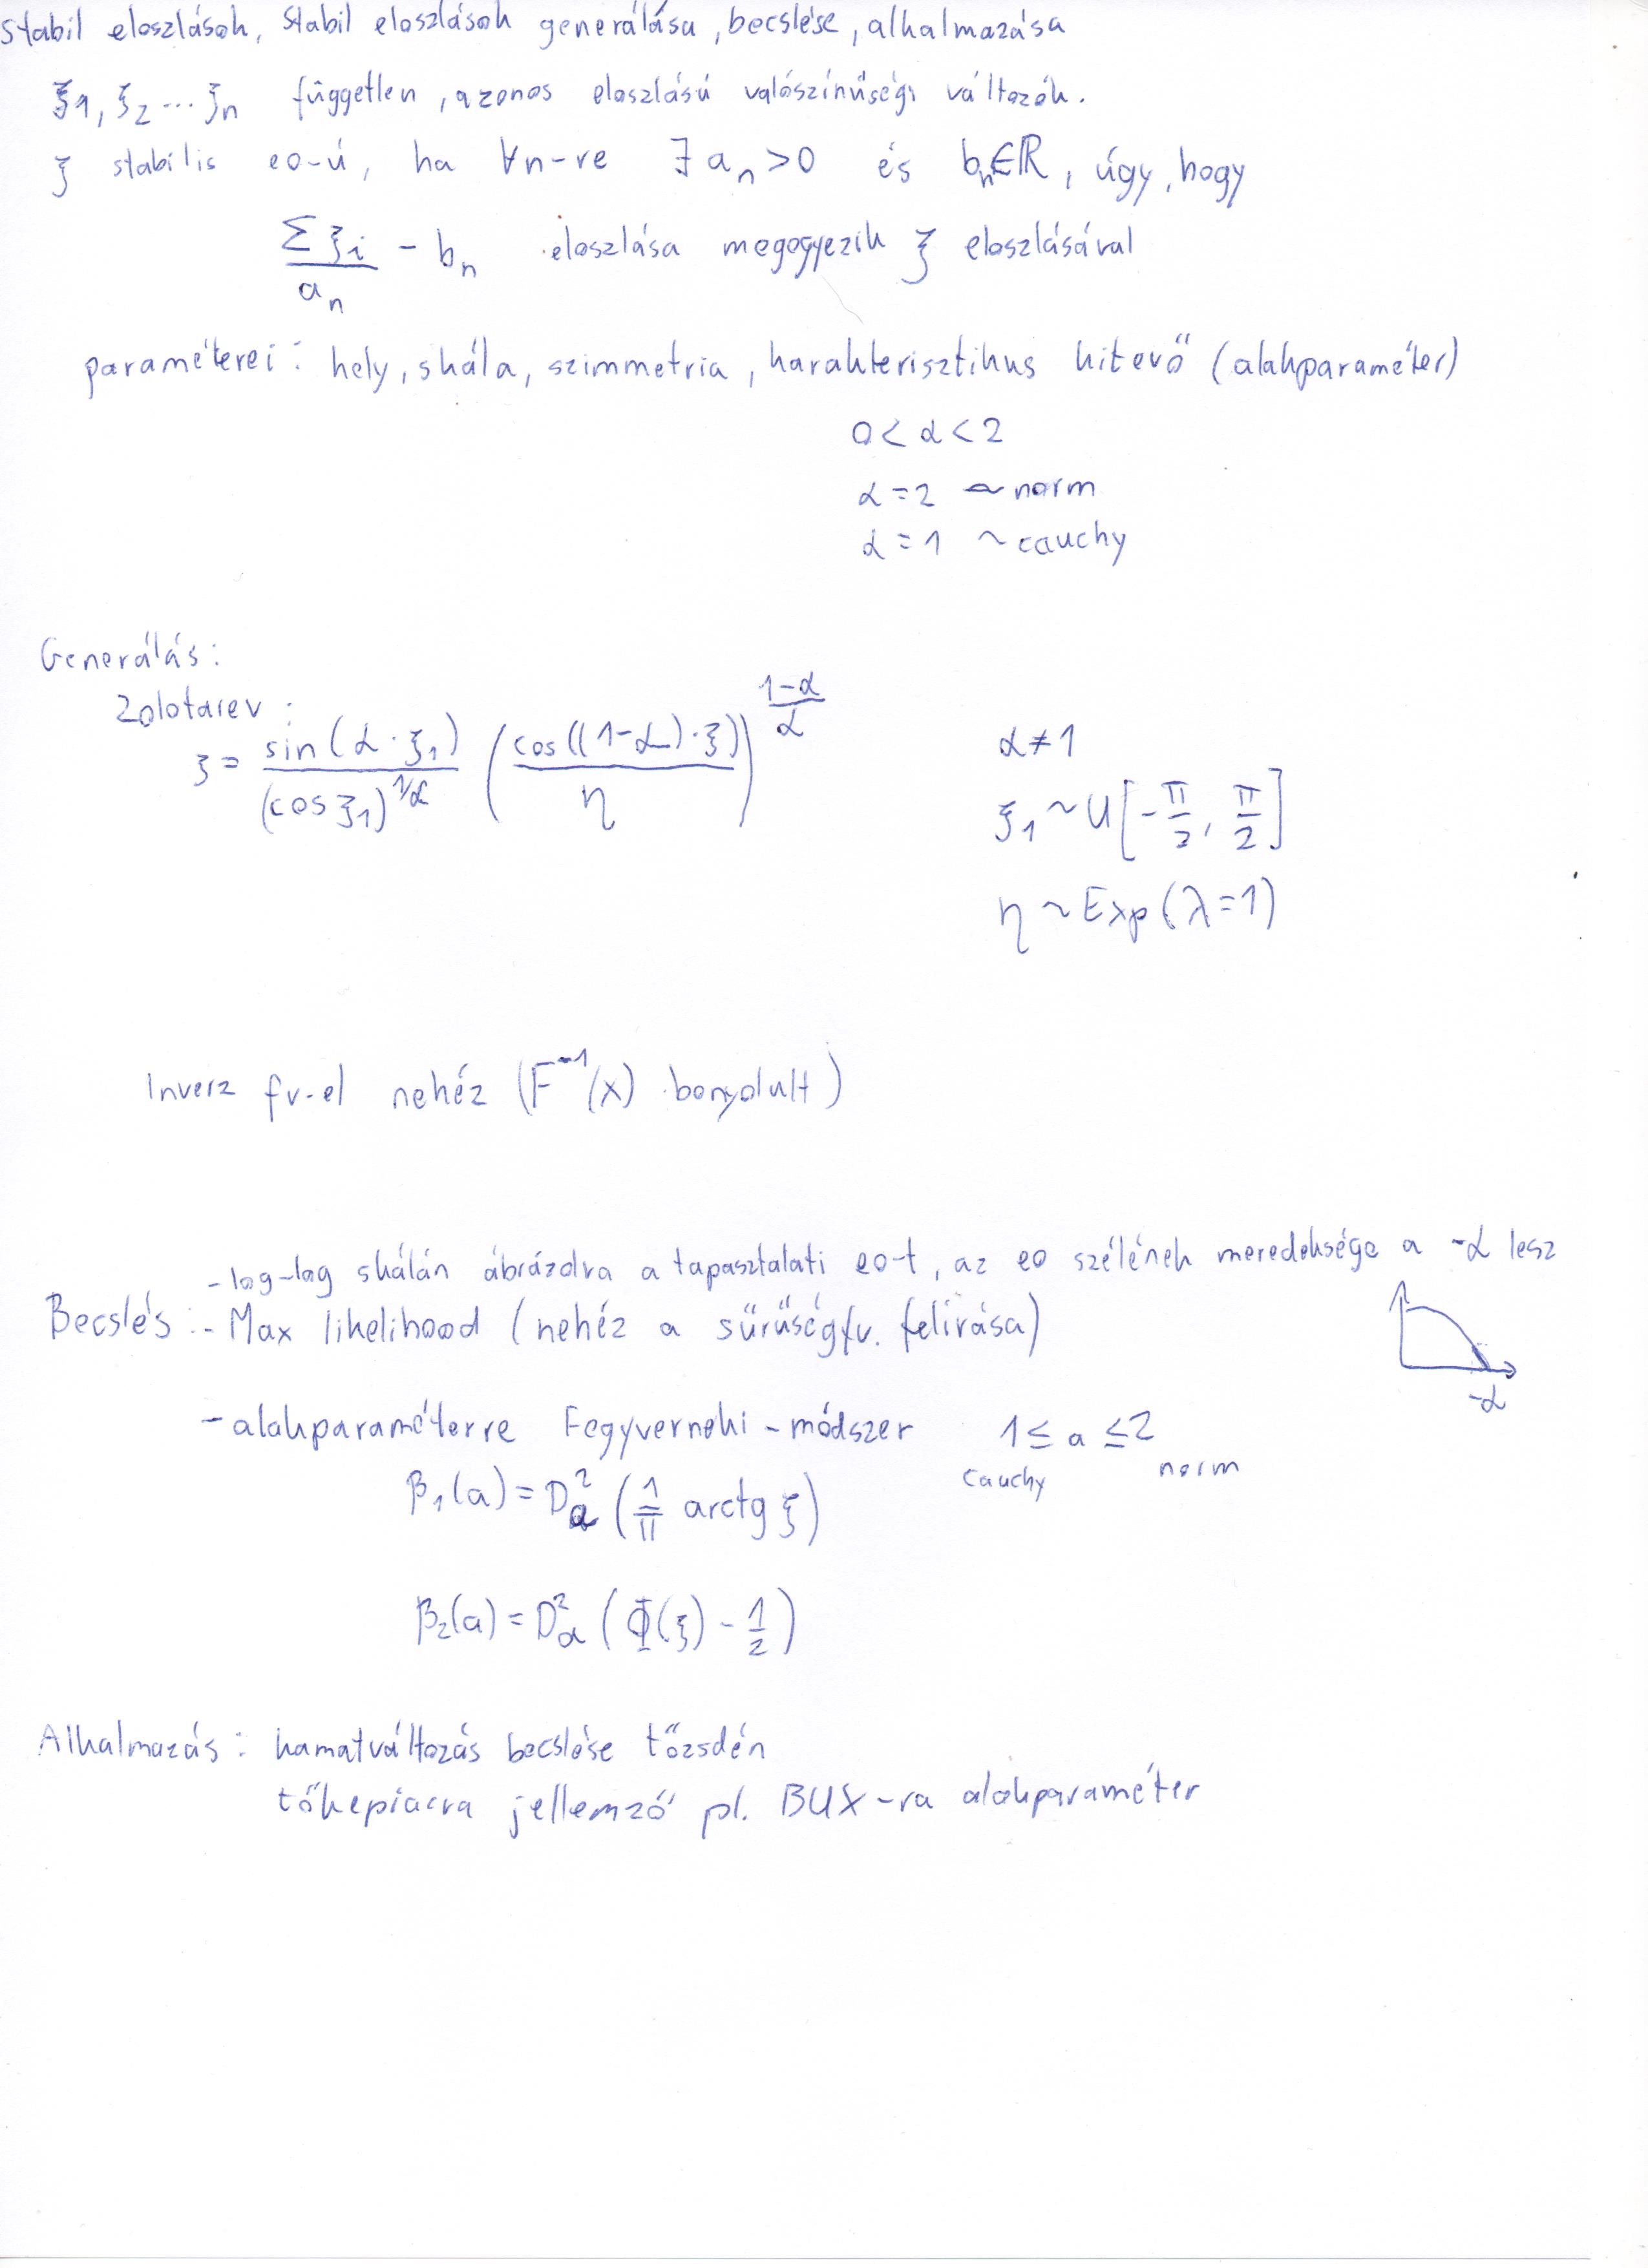 Stabil eloszlások, Stabil eloszlások generálása, becslése, alkalmazása
ξ1, ξ2 ... ξn független, azonos eloszlású valószínűségi változók.
ξ stabilis eo-ú, ha ∀n-re ∃ a_n > 0 és b_n ∈ ℝ, úgy, hogy
Σξi / a_n - b_n eloszlása megegyezik ξ eloszlásával
paraméterei: hely, skála, szimmetria, karakterisztikus kitevő (alakparaméter)
0 < α < 2
α = 2 ~ norm
α = 1 ~ cauchy
Generálás:
Zolotarev:
ξ = sin(α · ξ1) / (cos ξ1)^(1/α) (cos((1-α) · ξ) / η)^((1-α)/α) α ≠ 1
ξ1 ~ U[-π/2, π/2]
η ~ Exp(λ=1)
Inverz fv-el nehéz (F^-1(x) bonyolult)
- log-log skálán ábrázolva a tapasztalati eo-t, az eo szélének meredeksége a -α lesz
Becslés: - Max likelihood (nehéz a sűrűségfv. felírása)
-α
- alakparaméterre Fegyverneki-módszer 1 ≤ a ≤ 2
cauchy norm
β1(a) = D²α (1/π arctg ξ)
β2(a) = D²α (Φ(ξ) - 1/2)
Alkalmazás: kamatváltozás becslése tőzsdén
tőkepiacra jellemző pl. BUX-ra alakparaméter